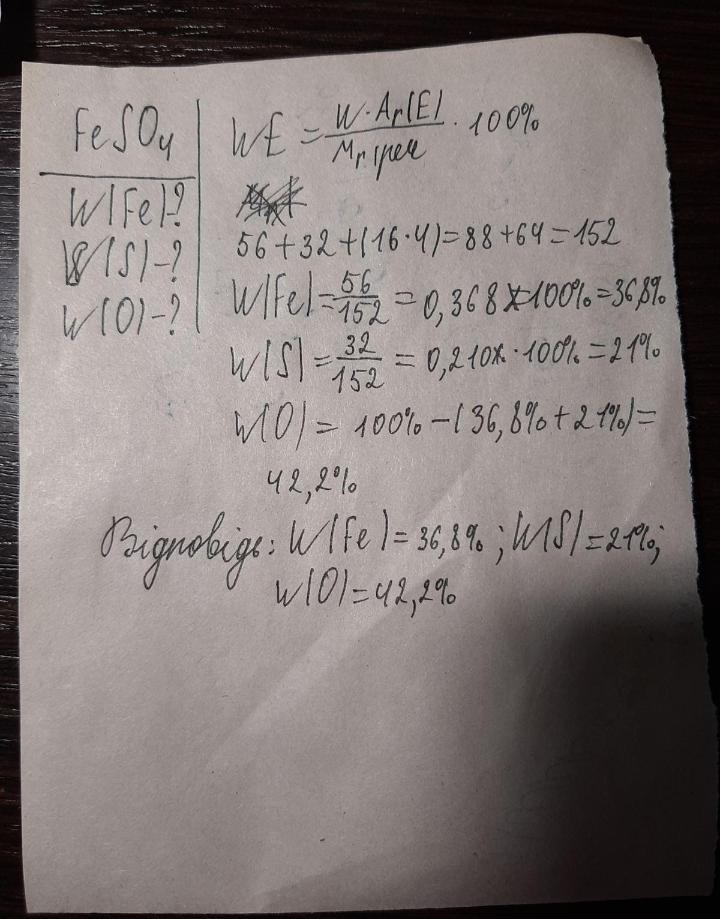 FeSO4
W(Fe)-?
W(S)-?
W(O)-?
WE = W·Ar(E) / Mr(реч · 100%
56+32+(16·4)=88+64=152
W(Fe)=56/152=0,368×100%=36,8%
W(S)=32/152=0,210·100%=21%
W(O)=100%-(36,8%+21%)=
42,2%
Відповідь: W(Fe)=36,8%; W(S)=21%;
W(O)=42,2%